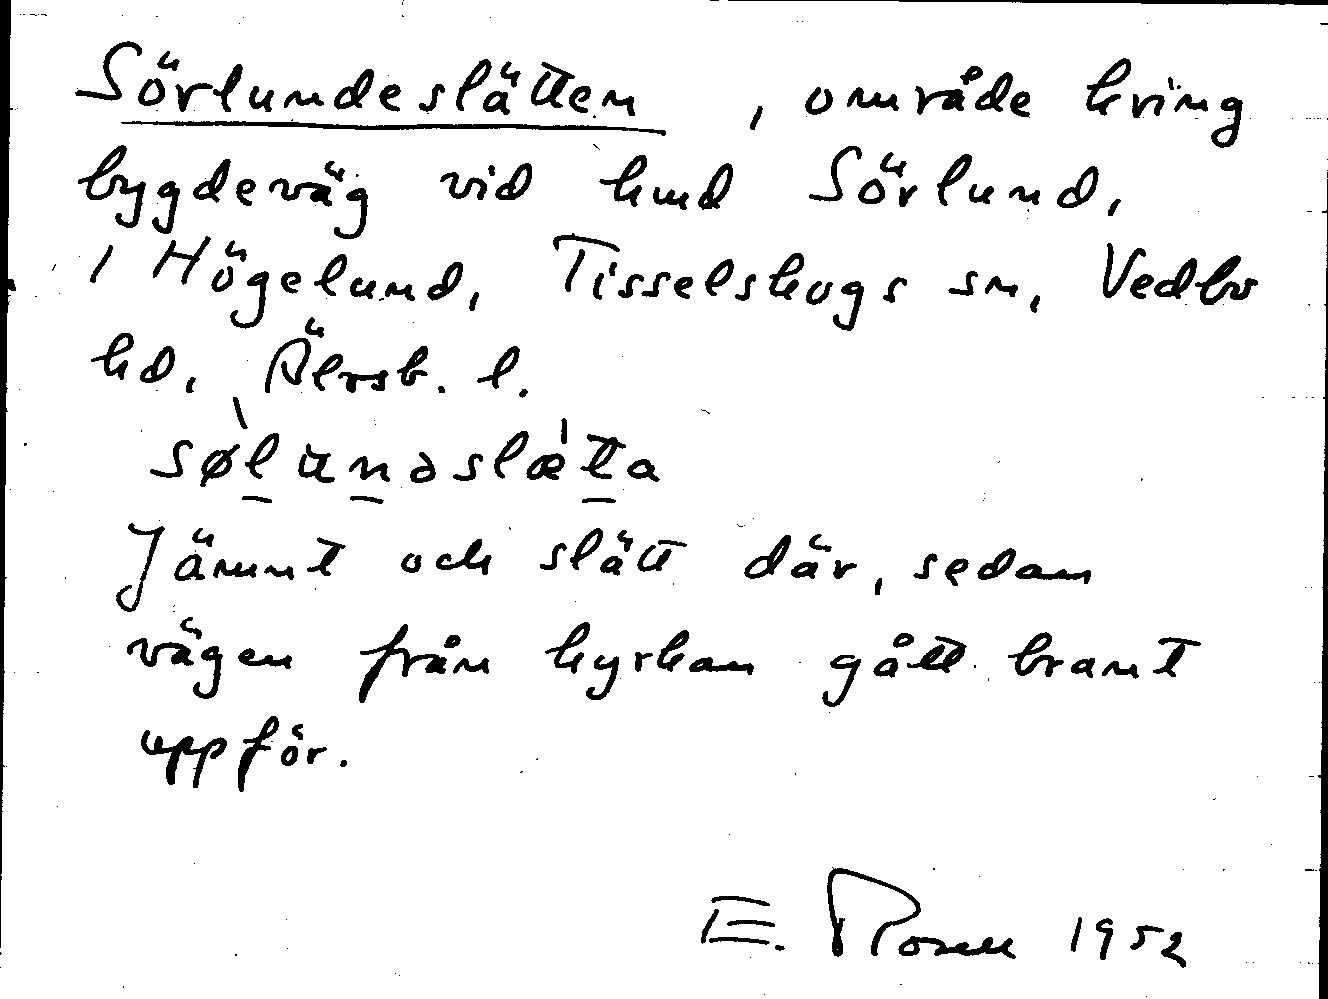 Sörlundeslätten, område kring
bygdeväg vid hmd Sörlund,
1 Högelund, Tisselskogs sn, Vedbo
hd, Älvsb. l.
sølunəslæta
Jämnt och slätt där, sedan
vägen från kyrkan gått brant
uppför.
E. Rosell 1952